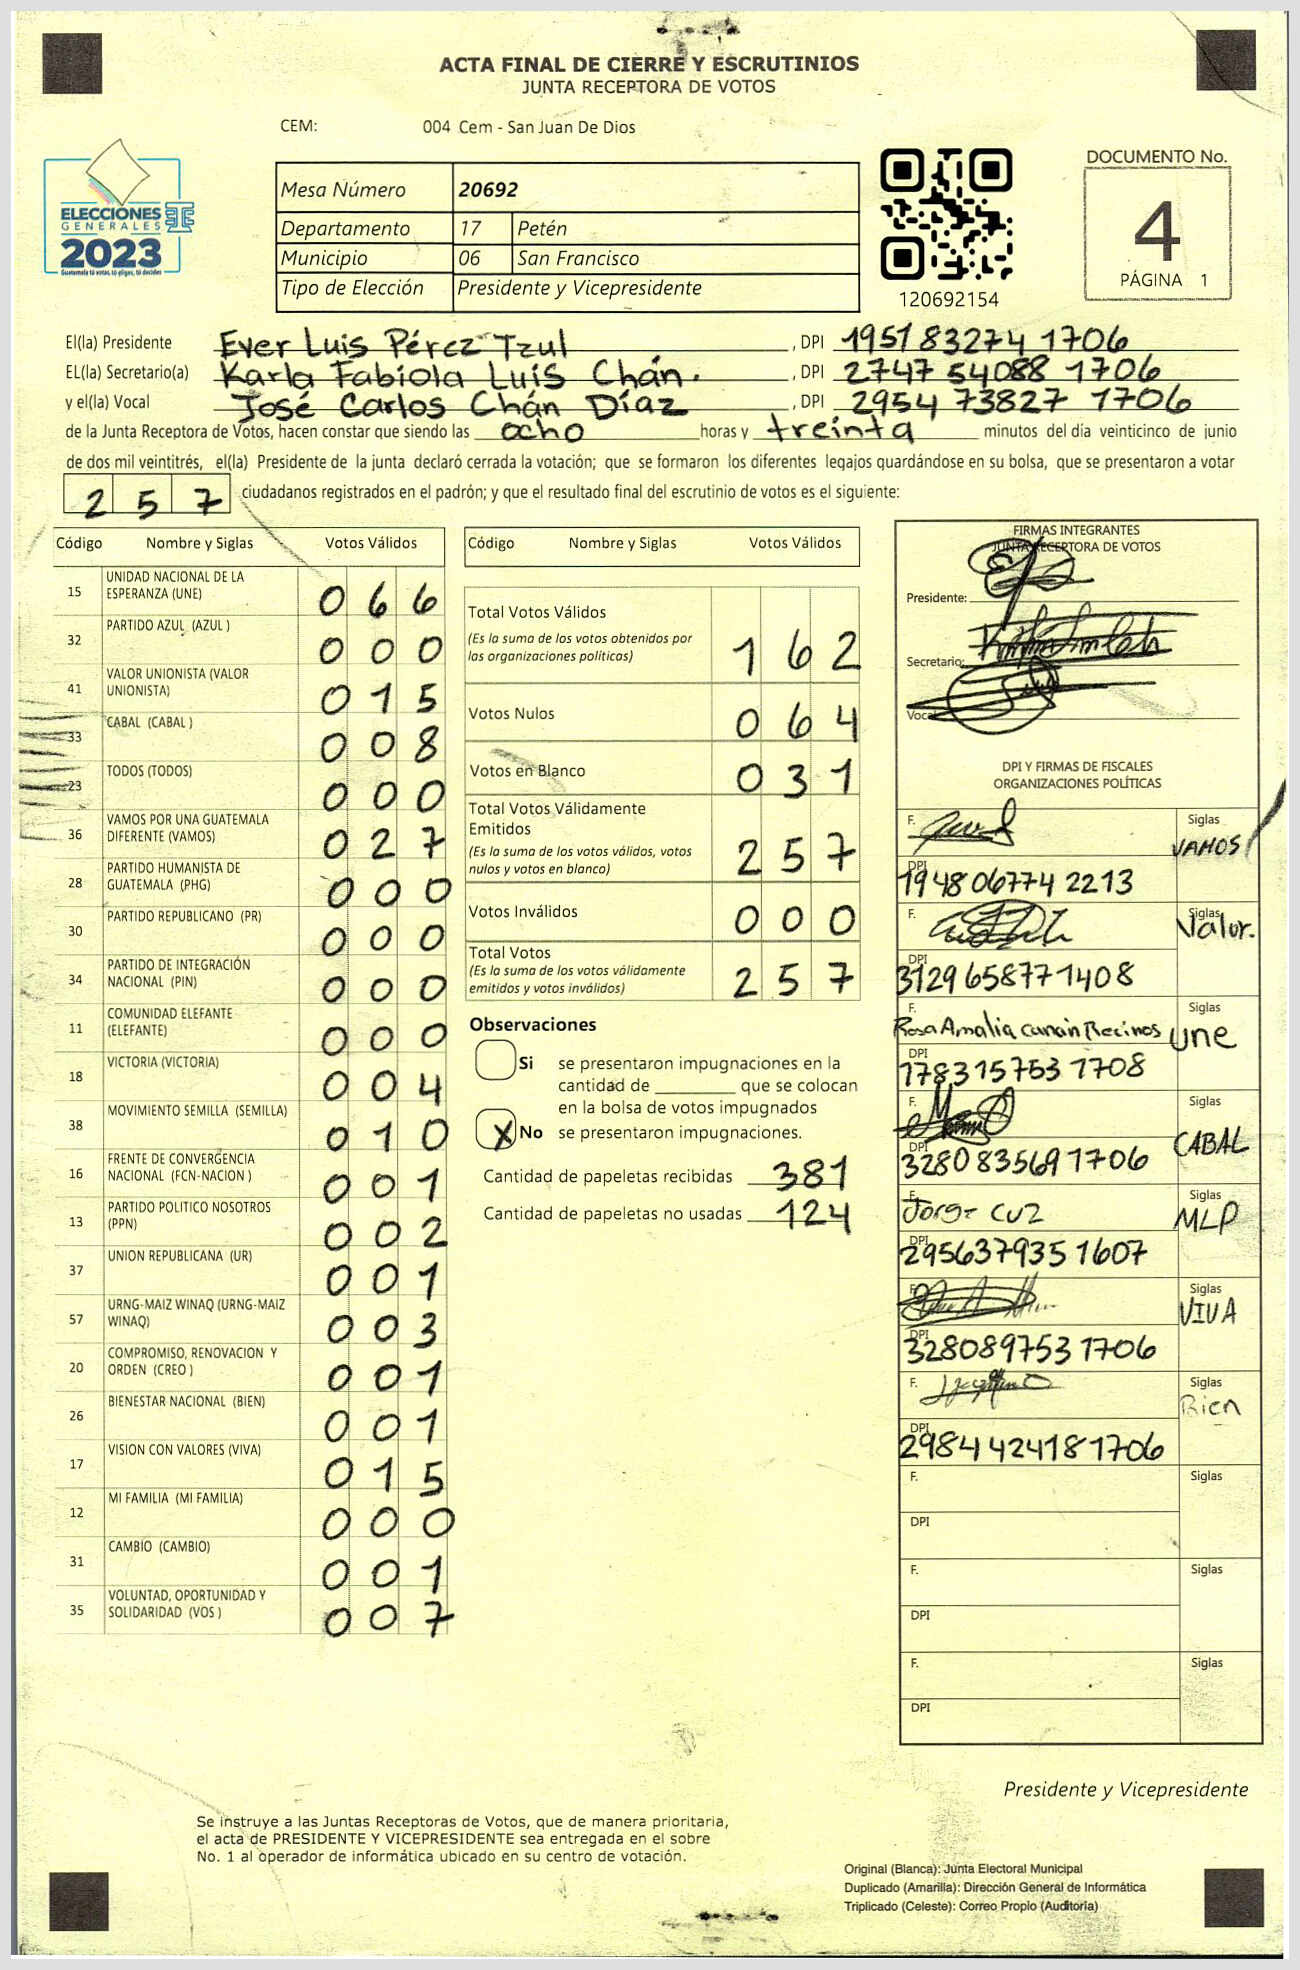 ACTA FINAL DE CIERRE Y ESCRUTINIOS
JUNTA RECEPTORA DE VOTOS
CEM: 004 Cem - San Juan De Dios
ELECCIONES
GENERALES
2023
Guatemala tú votas, tú eliges, tú decides
Mesa Número 20692
Departamento 17 Petén
Municipio 06 San Francisco
Tipo de Elección Presidente y Vicepresidente
120692154
DOCUMENTO No.
4
PÁGINA 1
El(la) Presidente Ever Luis Pérez Tzul , DPI 1951 83274 1706
EL(la) Secretario(a) Karla Fabiola Luis Chán. , DPI 2747 54088 1706
y el(la) Vocal José Carlos Chán Díaz , DPI 2954 73827 1706
de la Junta Receptora de Votos, hacen constar que siendo las ocho horas y treinta minutos del día veinticinco de junio
de dos mil veintitrés, el(la) Presidente de la junta declaró cerrada la votación; que se formaron los diferentes legajos guardándose en su bolsa, que se presentaron a votar
2 5 7 ciudadanos registrados en el padrón; y que el resultado final del escrutinio de votos es el siguiente:
Código Nombre y Siglas Votos Válidos
15 UNIDAD NACIONAL DE LA ESPERANZA (UNE) 0 6 6
32 PARTIDO AZUL (AZUL ) 0 0 0
41 VALOR UNIONISTA (VALOR UNIONISTA) 0 1 5
33 CABAL (CABAL ) 0 0 8
23 TODOS (TODOS) 0 0 0
36 VAMOS POR UNA GUATEMALA DIFERENTE (VAMOS) 0 2 7
28 PARTIDO HUMANISTA DE GUATEMALA (PHG) 0 0 0
30 PARTIDO REPUBLICANO (PR) 0 0 0
34 PARTIDO DE INTEGRACIÓN NACIONAL (PIN) 0 0 0
11 COMUNIDAD ELEFANTE (ELEFANTE) 0 0 0
18 VICTORIA (VICTORIA) 0 0 4
38 MOVIMIENTO SEMILLA (SEMILLA) 0 1 0
16 FRENTE DE CONVERGENCIA NACIONAL (FCN-NACION ) 0 0 1
13 PARTIDO POLITICO NOSOTROS (PPN) 0 0 2
37 UNION REPUBLICANA (UR) 0 0 1
57 URNG-MAIZ WINAQ (URNG-MAIZ WINAQ) 0 0 3
20 COMPROMISO, RENOVACION Y ORDEN (CREO ) 0 0 1
26 BIENESTAR NACIONAL (BIEN) 0 0 1
17 VISION CON VALORES (VIVA) 0 1 5
12 MI FAMILIA (MI FAMILIA) 0 0 0
31 CAMBIO (CAMBIO) 0 0 1
35 VOLUNTAD, OPORTUNIDAD Y SOLIDARIDAD (VOS ) 0 0 7
Código Nombre y Siglas Votos Válidos
Total Votos Válidos 1 6 2
(Es la suma de los votos obtenidos por
las organizaciones políticas)
Votos Nulos 0 6 4
Votos en Blanco 0 3 1
Total Votos Válidamente
Emitidos 2 5 7
(Es la suma de los votos válidos, votos
nulos y votos en blanco)
Votos Inválidos 0 0 0
Total Votos 2 5 7
(Es la suma de los votos válidamente
emitidos y votos inválidos)
Observaciones
Si se presentaron impugnaciones en la
cantidad de ________ que se colocan
en la bolsa de votos impugnados
X No se presentaron impugnaciones.
Cantidad de papeletas recibidas 381
Cantidad de papeletas no usadas 124
FIRMAS INTEGRANTES
JUNTA RECEPTORA DE VOTOS
Presidente:
Secretario:
Vocal
DPI Y FIRMAS DE FISCALES
ORGANIZACIONES POLÍTICAS
F. Siglas VAMOS
DPI 1948 06774 2213
F. Siglas Valor.
DPI 3129 65877 1408
Rosa Amalia Canan Recinos Siglas une
DPI 1783 15753 1708
F. Siglas CABAL
DPI 3280 83569 1706
F. Jorge Cuz Siglas MLP
DPI 2956 37935 1607
F. Siglas VIVA
DPI 3280 89753 1706
F. Siglas Bien
DPI 2984 42418 1706
F. Siglas
DPI
F. Siglas
DPI
F. Siglas
DPI
Presidente y Vicepresidente
Se instruye a las Juntas Receptoras de Votos, que de manera prioritaria,
el acta de PRESIDENTE Y VICEPRESIDENTE sea entregada en el sobre
No. 1 al operador de informática ubicado en su centro de votación.
Original (Blanca): Junta Electoral Municipal
Duplicado (Amarilla): Dirección General de Informática
Triplicado (Celeste): Correo Propio (Auditoría)